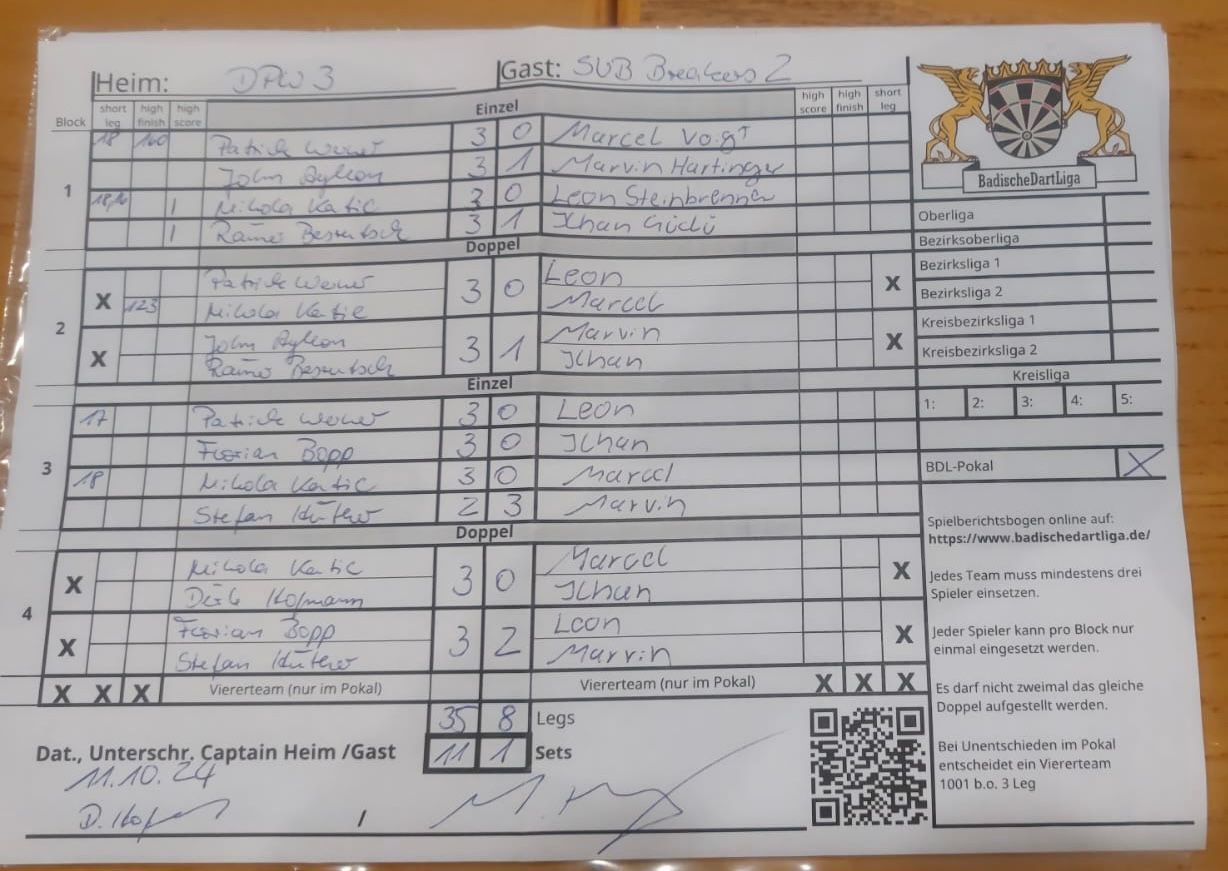 Heim: DPW 3 Gast: SUB Breakers 2
Block short leg high finish high score Einzel high score high finish short leg
1
18 160 Patrick 3 0 Marcel Voigt
John 3 1 Marvin Hartinger
18, I Nikola Katic 3 0 Leon Steinbrenner
I 3 1 Ilhan
Doppel
2
X Patrick 3 0 Leon X
123 Nikola Katic Marcel
X John 3 1 Marvin X
Ilhan
Einzel
3
17 Patrick 3 0 Leon
Florian Bopp 3 0 Ilhan
18 Nikola Katic 3 0 Marcel
Stefan 2 3 Marvin
Doppel
4
X Nikola Katic 3 0 Marcel X
Dirk Hofmann Ilhan
X Florian Bopp 3 2 Leon X
Stefan Marvin
X X X Viererteam (nur im Pokal) Viererteam (nur im Pokal) X X X
35 8 Legs
11 1 Sets
Dat., Unterschr. Captain Heim /Gast
11.10.24
/
BadischeDartLiga
Oberliga
Bezirksoberliga
Bezirksliga 1
Bezirksliga 2
Kreisbezirksliga 1
Kreisbezirksliga 2
Kreisliga
1: 2: 3: 4: 5:
BDL-Pokal X
Spielberichtsbogen online auf:
https://www.badischedartliga.de/
Jedes Team muss mindestens drei
Spieler einsetzen.
Jeder Spieler kann pro Block nur
einmal eingesetzt werden.
Es darf nicht zweimal das gleiche
Doppel aufgestellt werden.
Bei Unentschieden im Pokal
entscheidet ein Viererteam
1001 b.o. 3 Leg